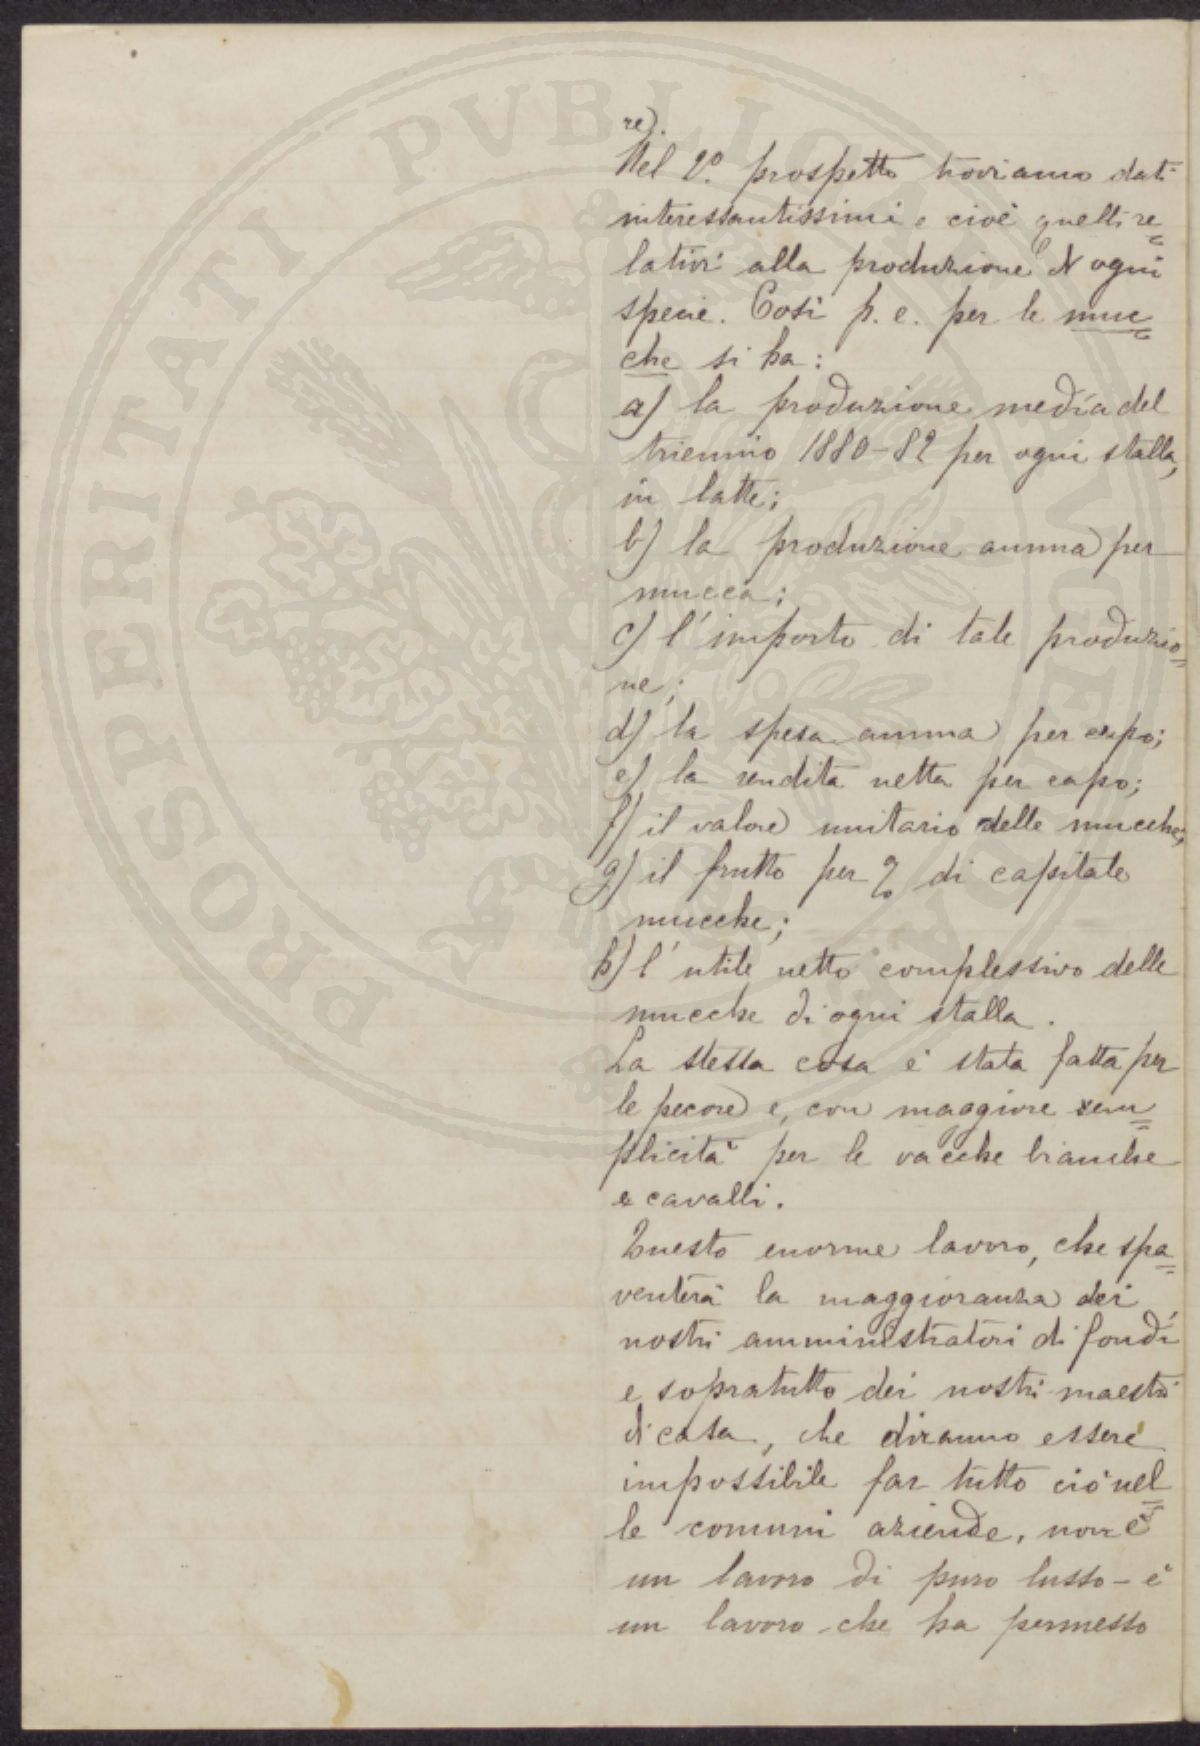 re).
Nel 2º. prospetto troviamo dati
interessantissimi e cioè quelli re=
lativi alla produzione d'ogni
specie. Così p. e. per le muc=
che si ha:
a) la produzione media del
triennio 1880-82 per ogni stalla,
in latte;
b) la produzione annua per
mucca;
c) l'importo di tale produzio=
ne;
d) la spesa annua per capo;
e) la rendita netta per capo;
f) il valore unitario delle mucche;
g) il frutto per % di capitale
mucche;
h) l'utile netto complessivo delle
mucche di ogni stalla.
La stessa cosa è stata fatta per
le pecore e, con maggiore sem=
plicità per le vacche bianche
e cavalli.
Questo enorme lavoro, che spa=
venterà la maggioranza dei
nostri amministratori di fondi
e sopratutto dei nostri maestri
di casa, che diranno essere
impossibile far tutto ciò nel=
le comuni aziende, non è
un lavoro di puro lusso - è
un lavoro che ha permesso
PROSPERITATI PVBLICAE AVGENDAE